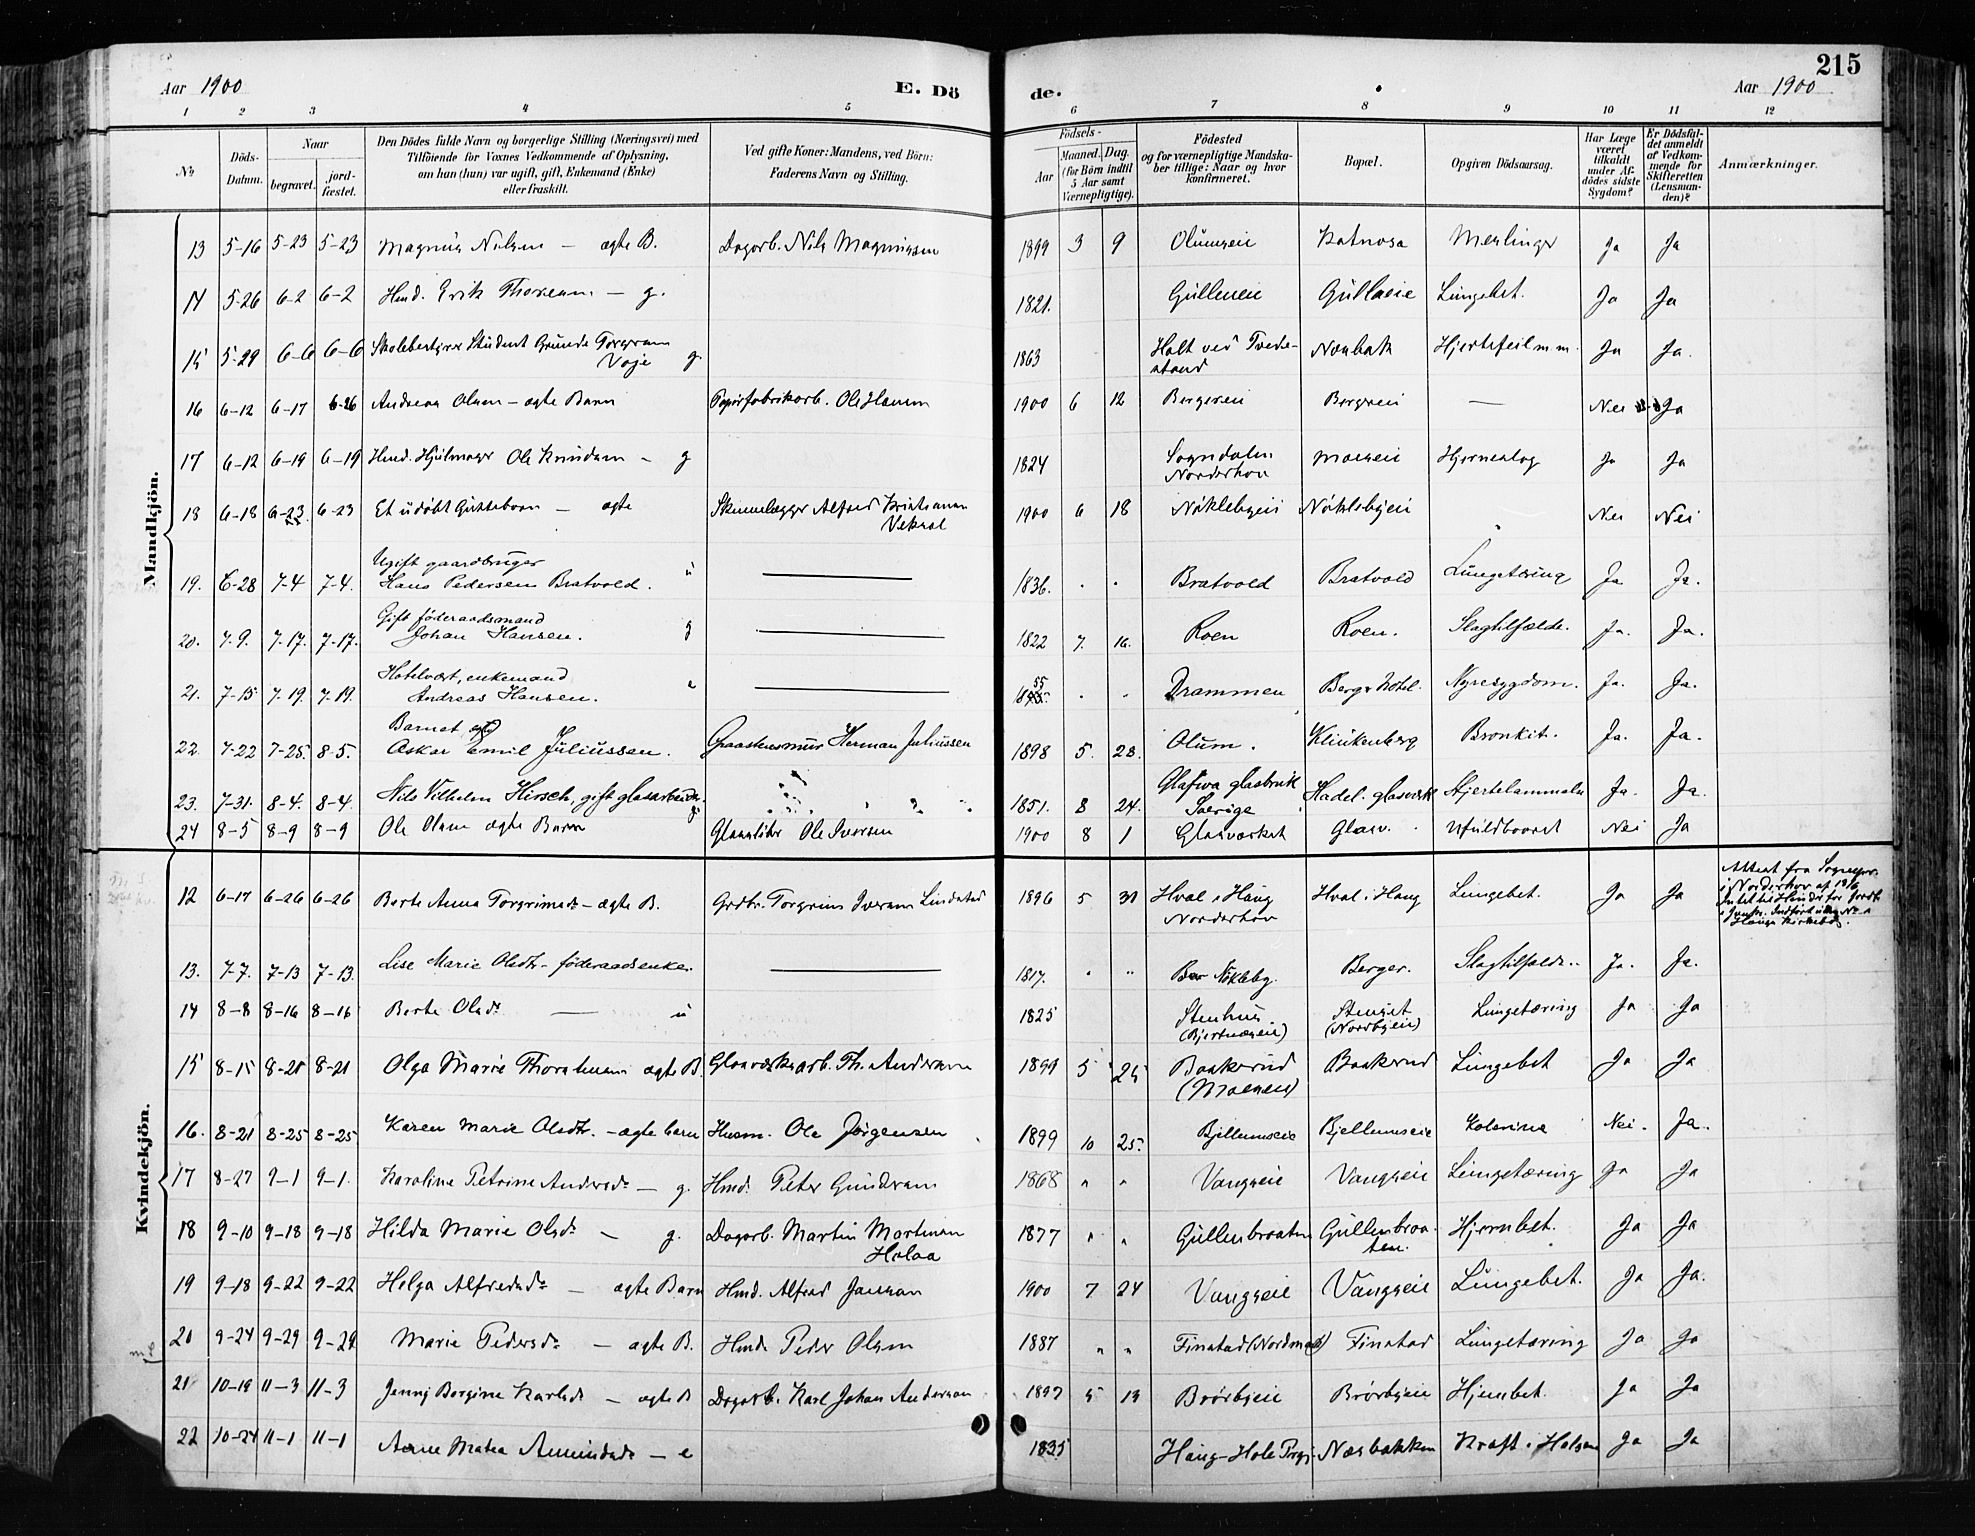 215
Aar 1900 E. Dö de. Aar 1900
1 2 3 4 5 6 7 8 9 10 11 12
No Döds-Datum. Naar begravet. jordfæstet. Den Dödes fulde Navn og borgerlige Stilling (Næringsvei) med Tilföiende for Voxnes Vedkommende af Oplysning, om han (hun) var ugift, gift, Enkemand (Enke) eller fraskilt. Ved gifte Koner: Mandens, ved Börn: Faderens Navn og Stilling. Födsels- Aar Maaned. Dag. (for Börn indtil 5 Aar samt Værnepligtige). Födested og for værnepligtige Mandskaber tillige: Naar og hvor konfirmeret. Bopæl. Opgiven Dödsaarsag. Har Læge været tilkaldt under Afdödes sidste Sygdom? Er Dödsfaldet anmeldt af Vedkommende for Skifteretten (Lensmanden)? Anmærkninger.
Mandkjön.
13 5-16 5-23 5-23 Magnus Nilsen — ægte B. Dagarb. Nils Magnussen 1899 3 9 Olumseie Katnosa Ja Ja
14 5-26 6-2 6-2 Hmd. Erik — g. 1821. Gulleneie Gulleneie Lungebet. Ja Ja
15 5-29 6-6 6-6 Skolebestyrer Student Grunde Torgrsen
Voje g. 1863 Holt ved Tvede-
strand Hjertefeil m.m. Ja Ja.
16 6-12 6-17 6-26 Andreas Olsen — ægte Barn Papirfabrikarb. Ole Hansen 1900 6 12 Bergereie Bergereie — Nei Ja
17 6-12 6-19 6-19 Hmd. Hjulmager Ole Knudsen — g 1824 Sogndalen
Norderhov Moeseie Hjerneslag Ja Ja
18 6-18 6-23. 6-23 Et udöbt Guttebarn — ægte Alfred Kristiansen
1900 6 18 Nöklebyeie Nöklebyeie Nei Nei
19. 6-28 7-4 7-4. Ugift gaardbruger
Hans Pedersen Bratvold. u — 1836. " " Bratvold Bratvold Lungetæring Ja. Ja.
20. 7-9. 7-17. 7-17. Gift föderaadsmand
Johan Hansen. g — 1822 7. 16. Roen Roen. Slagtilfælde. Ja. Ja.
21. 7-15. 7-19. 7-19. Hotelvært, enkemand
Andreas Hansen. e — " " Drammen Bergs hotel. Nyresygdom. Ja. Ja.
22. 7-22 7-25. 8-5. Barnet ægte
Oskar Emil Juliussen. Graastensmur Herman Juliussen 1898 5. 28. Olum. Klinkenberg Bronkit. Ja. Ja.
23. 7-31. 8-4. 8-4. Nils Vilhelm Hirsch, gift glasarbeider. g. 1851. 8 24. Glafva glasbruk
Sverige Hadel. glasværk Hjertelammelse Ja. Ja.
24 8-5 8-9 8-9 Ole Olsen ægte Barn Glassliber Ole Iversen 1900 8 1 Glasværket Glasv. Ufuldbaaret Nei Ja
Kvindekjön.
12 6-17 6-26 6-26 Berte Anna Torgrimsdr — ægte B. Grdbr. Torgrim Iversen Lindstad 1896 5 Hval i Haug
Norderhov Hval i Haug Lungebet. Ja Ja Attest fra Sognepr.
i Norderhov af 19/6
Intet til Hinder for Jordf.
13. 7-7. 7-13 7-13. Lise Marie Olsdtr. föderaadsenke. — 1817. " " Nökleby. Berger. Slagtilfælde. Ja. Ja.
14 8-8 8-16 8-16 Berte Olsdr — u 1825 Stenhus
Stenset
(Nordbyeie) Lungetæring Ja Ja
15 8-15 8-21 8-21 Olga Marie ægte B. Glasværksarb. Th. Andersen 1899 5 25 Baakerud
(Moeseie) Baakerud Lungebet Ja Ja
16. 8-21 8-25 8-25 Karen Marie Olsdtr. — ægte barn Husm. Ole Jörgensen 1899 10 25. Bjellumseie Bjellumseie Kolerine Nei. Ja.
17 8-27 9-1 9-1. Karoline Petrine Andersdr — g. Hmd. Peter Gundersen 1868 " " Vangseie Vangseie Lungetæring Ja Ja
18 9-10 9-18 9-18 Hilda Marie Olsdr — g. Dagarb. Martin Martinsen
Holaa 1877 " " Gullenbraaten Gullenbraa-
ten. Hjernbet. Ja Ja
19 9-18 9-22 9-22 Helga Alfredsdr — ægte Barn Hmd. Alfred Jansen 1900 7 24 Vangseie Vangseie Lungebet. Ja Ja.
20 9-24 9-29 9-29 Marie Pedersdr — ægte B. Hmd. Peder Olsen 1887 " " Finstad (Nordmark) Finstad Lungetæring Ja Ja
21 10-19 11-3 11-3 Jenny Bergine Karlsdr — ægte B Dagarb. Karl Johan Andersen 1897 5 19 Brörbyeie Brörbyeie Hjernbet. Ja Ja
22 10-24 11-1 11-1 Anne Matea Amundsdr — e 1835 Haug-Hole Prgj. Næsbakken Kræft i Halsen Ja Ja